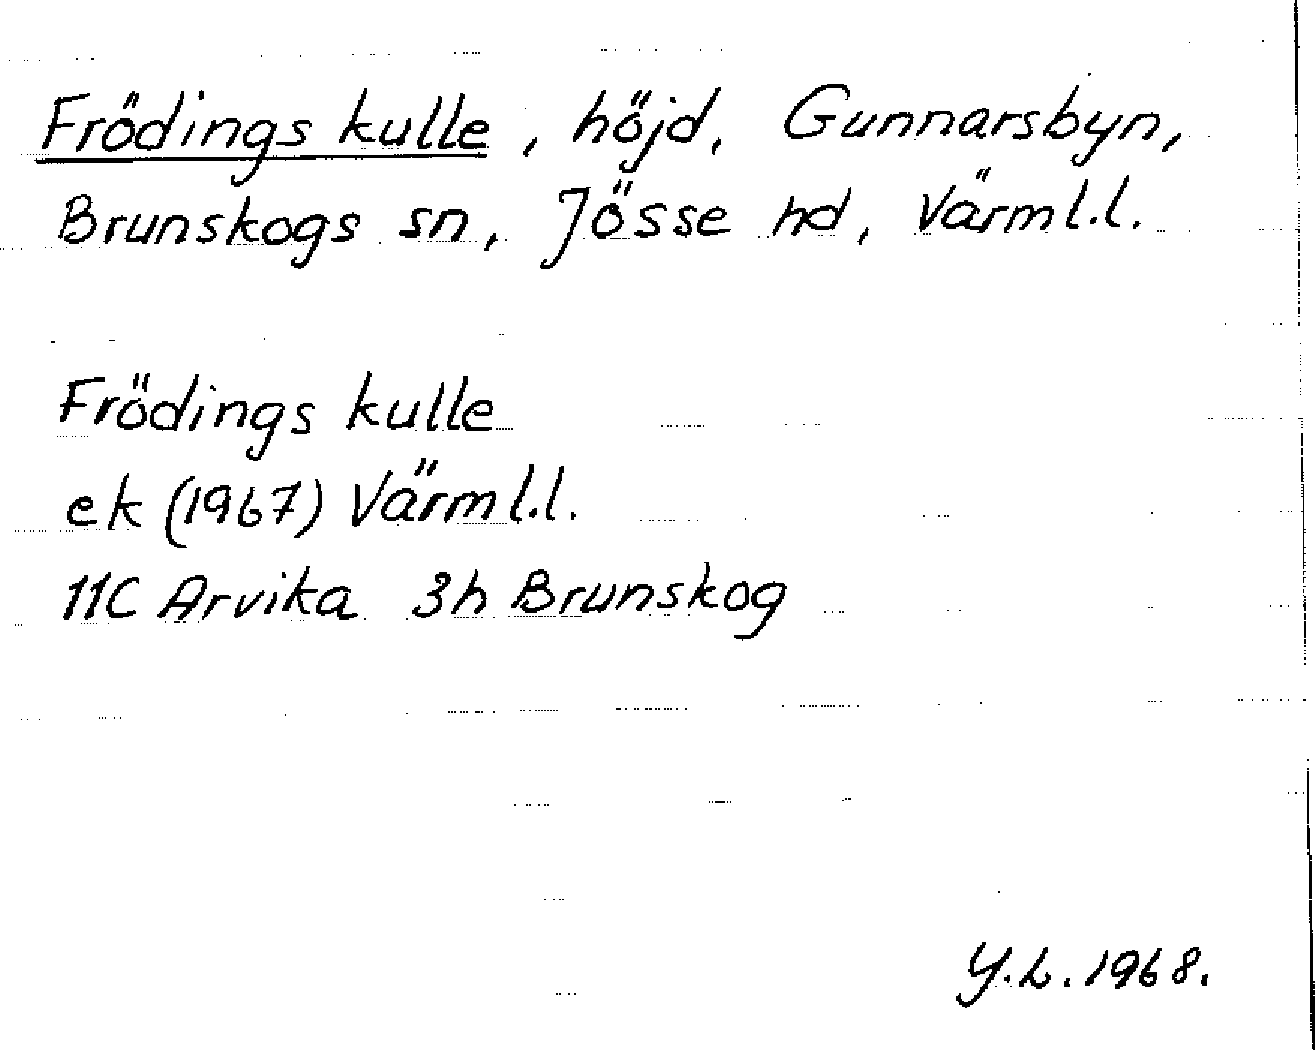 Frödings kulle, höjd, Gunnarsbyn,
Brunskogs sn, Jösse hd, Värml.l.
Frödings kulle
ek (1967) Värml.l.
11C Arvika 3h Brunskog
Y.L. 1968.